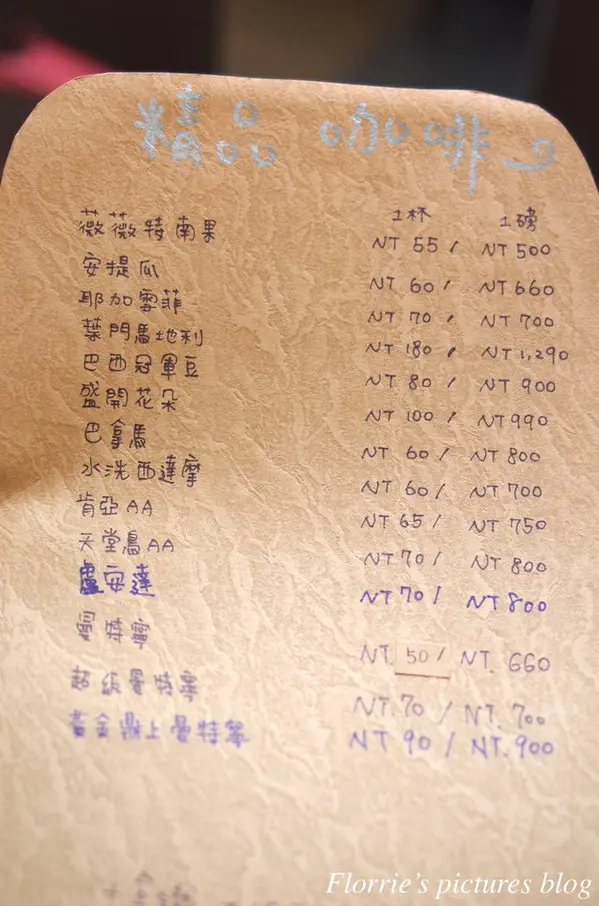 精品咖啡
1杯 1磅
薇薇特南果 NT 55 / NT 500
安提瓜 NT 60 / NT 660
耶加雪菲 NT 70 / NT 700
葉門馬地利 NT 180 / NT 1,290
巴西冠軍豆 NT 80 / NT 900
盛開花朵 NT 100 / NT 990
巴拿馬 NT 60 / NT 800
水洗西達摩 NT 60 / NT 700
肯亞AA NT 65 / NT 750
天堂鳥AA NT 70 / NT 800
盧安達 NT 70 / NT 800
曼特寧 NT. 50 / NT. 660
超級曼特寧 NT. 70 / NT. 700
黃金鼎上曼特寧 NT 90 / NT. 900
Florrie's pictures blog